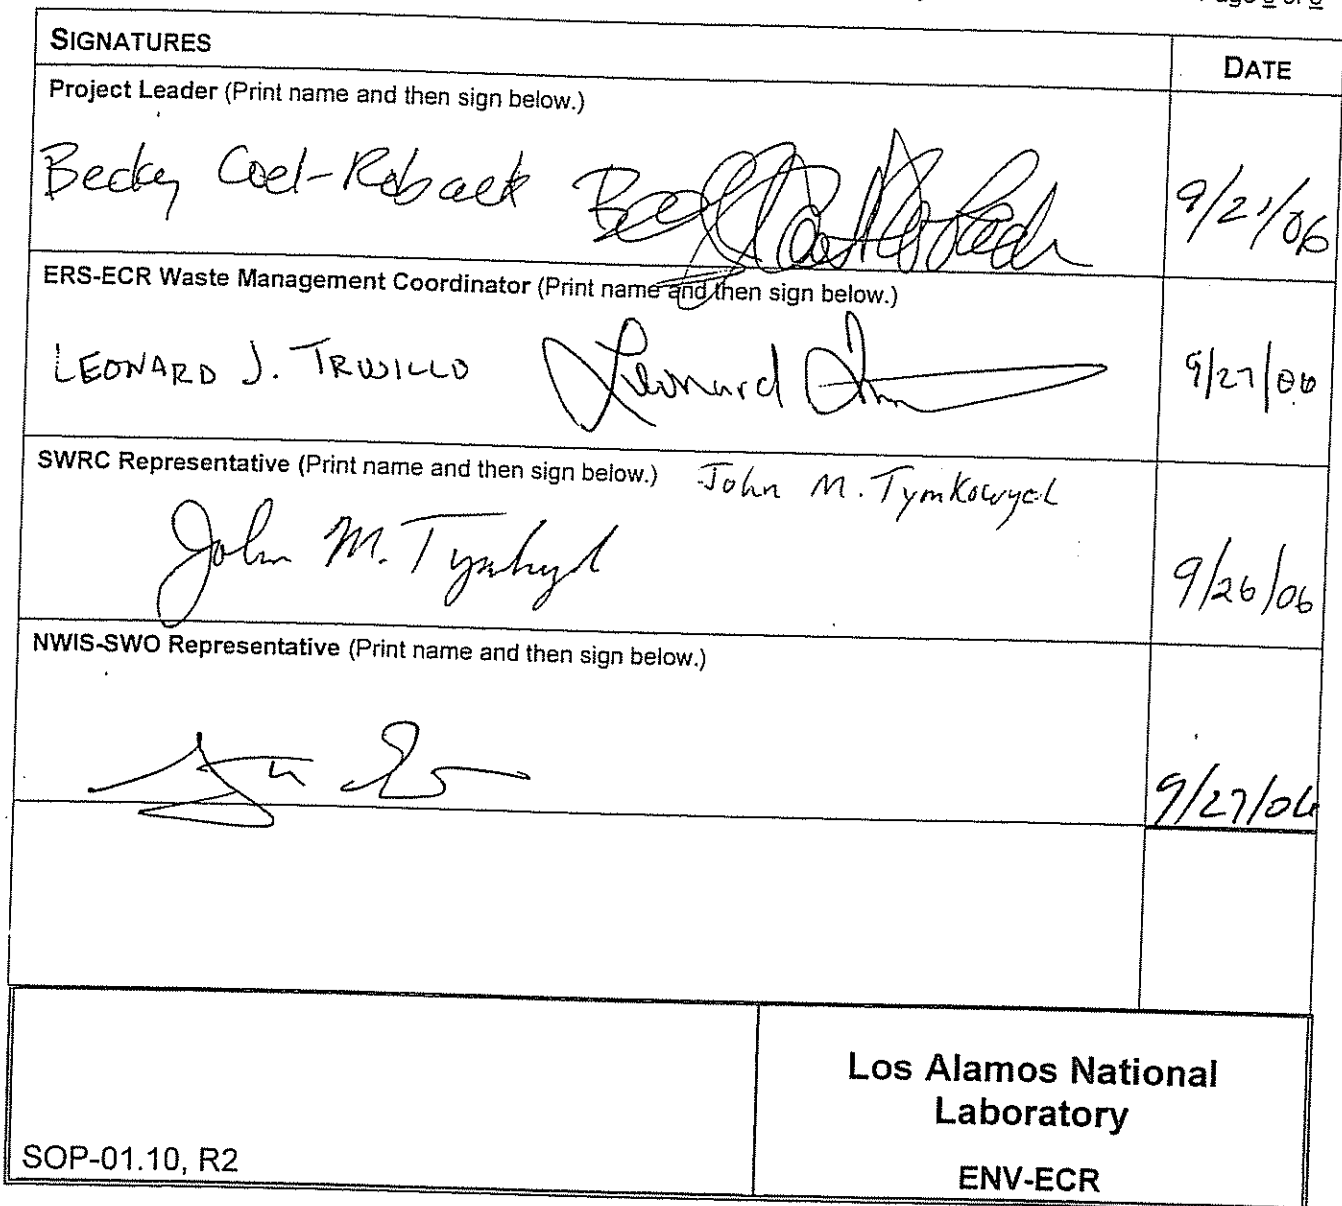 SIGNATURES
DATE
Project Leader (Print name and then sign below.)
Becky Coel-Roback Becky Coel-Roback
9/21/06
ERS-ECR Waste Management Coordinator (Print name and then sign below.)
LEONARD J. TRUJILLO Leonard
9/27/06
SWRC Representative (Print name and then sign below.) John M. Tymkowych
John M. Tymkowych
9/26/06
NWIS-SWO Representative (Print name and then sign below.)
9/27/06
Los Alamos National
Laboratory
SOP-01.10, R2
ENV-ECR